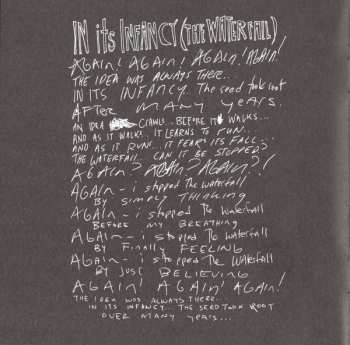 IN its INFANCY (THE WATERFALL)
AGAIN! AGAIN! AGAIN! AGAIN!
THE IDEA WAS ALWAYS THERE...
IN ITS INFANCY... The seed took root
AFTER MANY YEARS.
AN IDEA CRAWLS... BEFORE IT WALKS...
AND AS IT WALKS.. IT LEARNS TO RUN...
AND AS IT RUN.. IT FEARS ITS FALL...
THE WATERFALL... CAN IT BE STOPPED?
AGAIN? AGAIN? AGAIN?!
AGAIN - i stopped The Waterfall
By Simply THINKING
AGAIN - i stopped The Waterfall
BEFORE MY BREATHING
AGAIN - i stopped The Waterfall
By Finally FEELING
AGAIN - i stopped The WATERFALL
By JUST BELIEVING
AGAIN! AGAIN! AGAIN!
THE IDEA WAS ALWAYS THERE...
IN ITS INFANCY... THE SEED TOOK ROOT
OVER MANY YEARS...